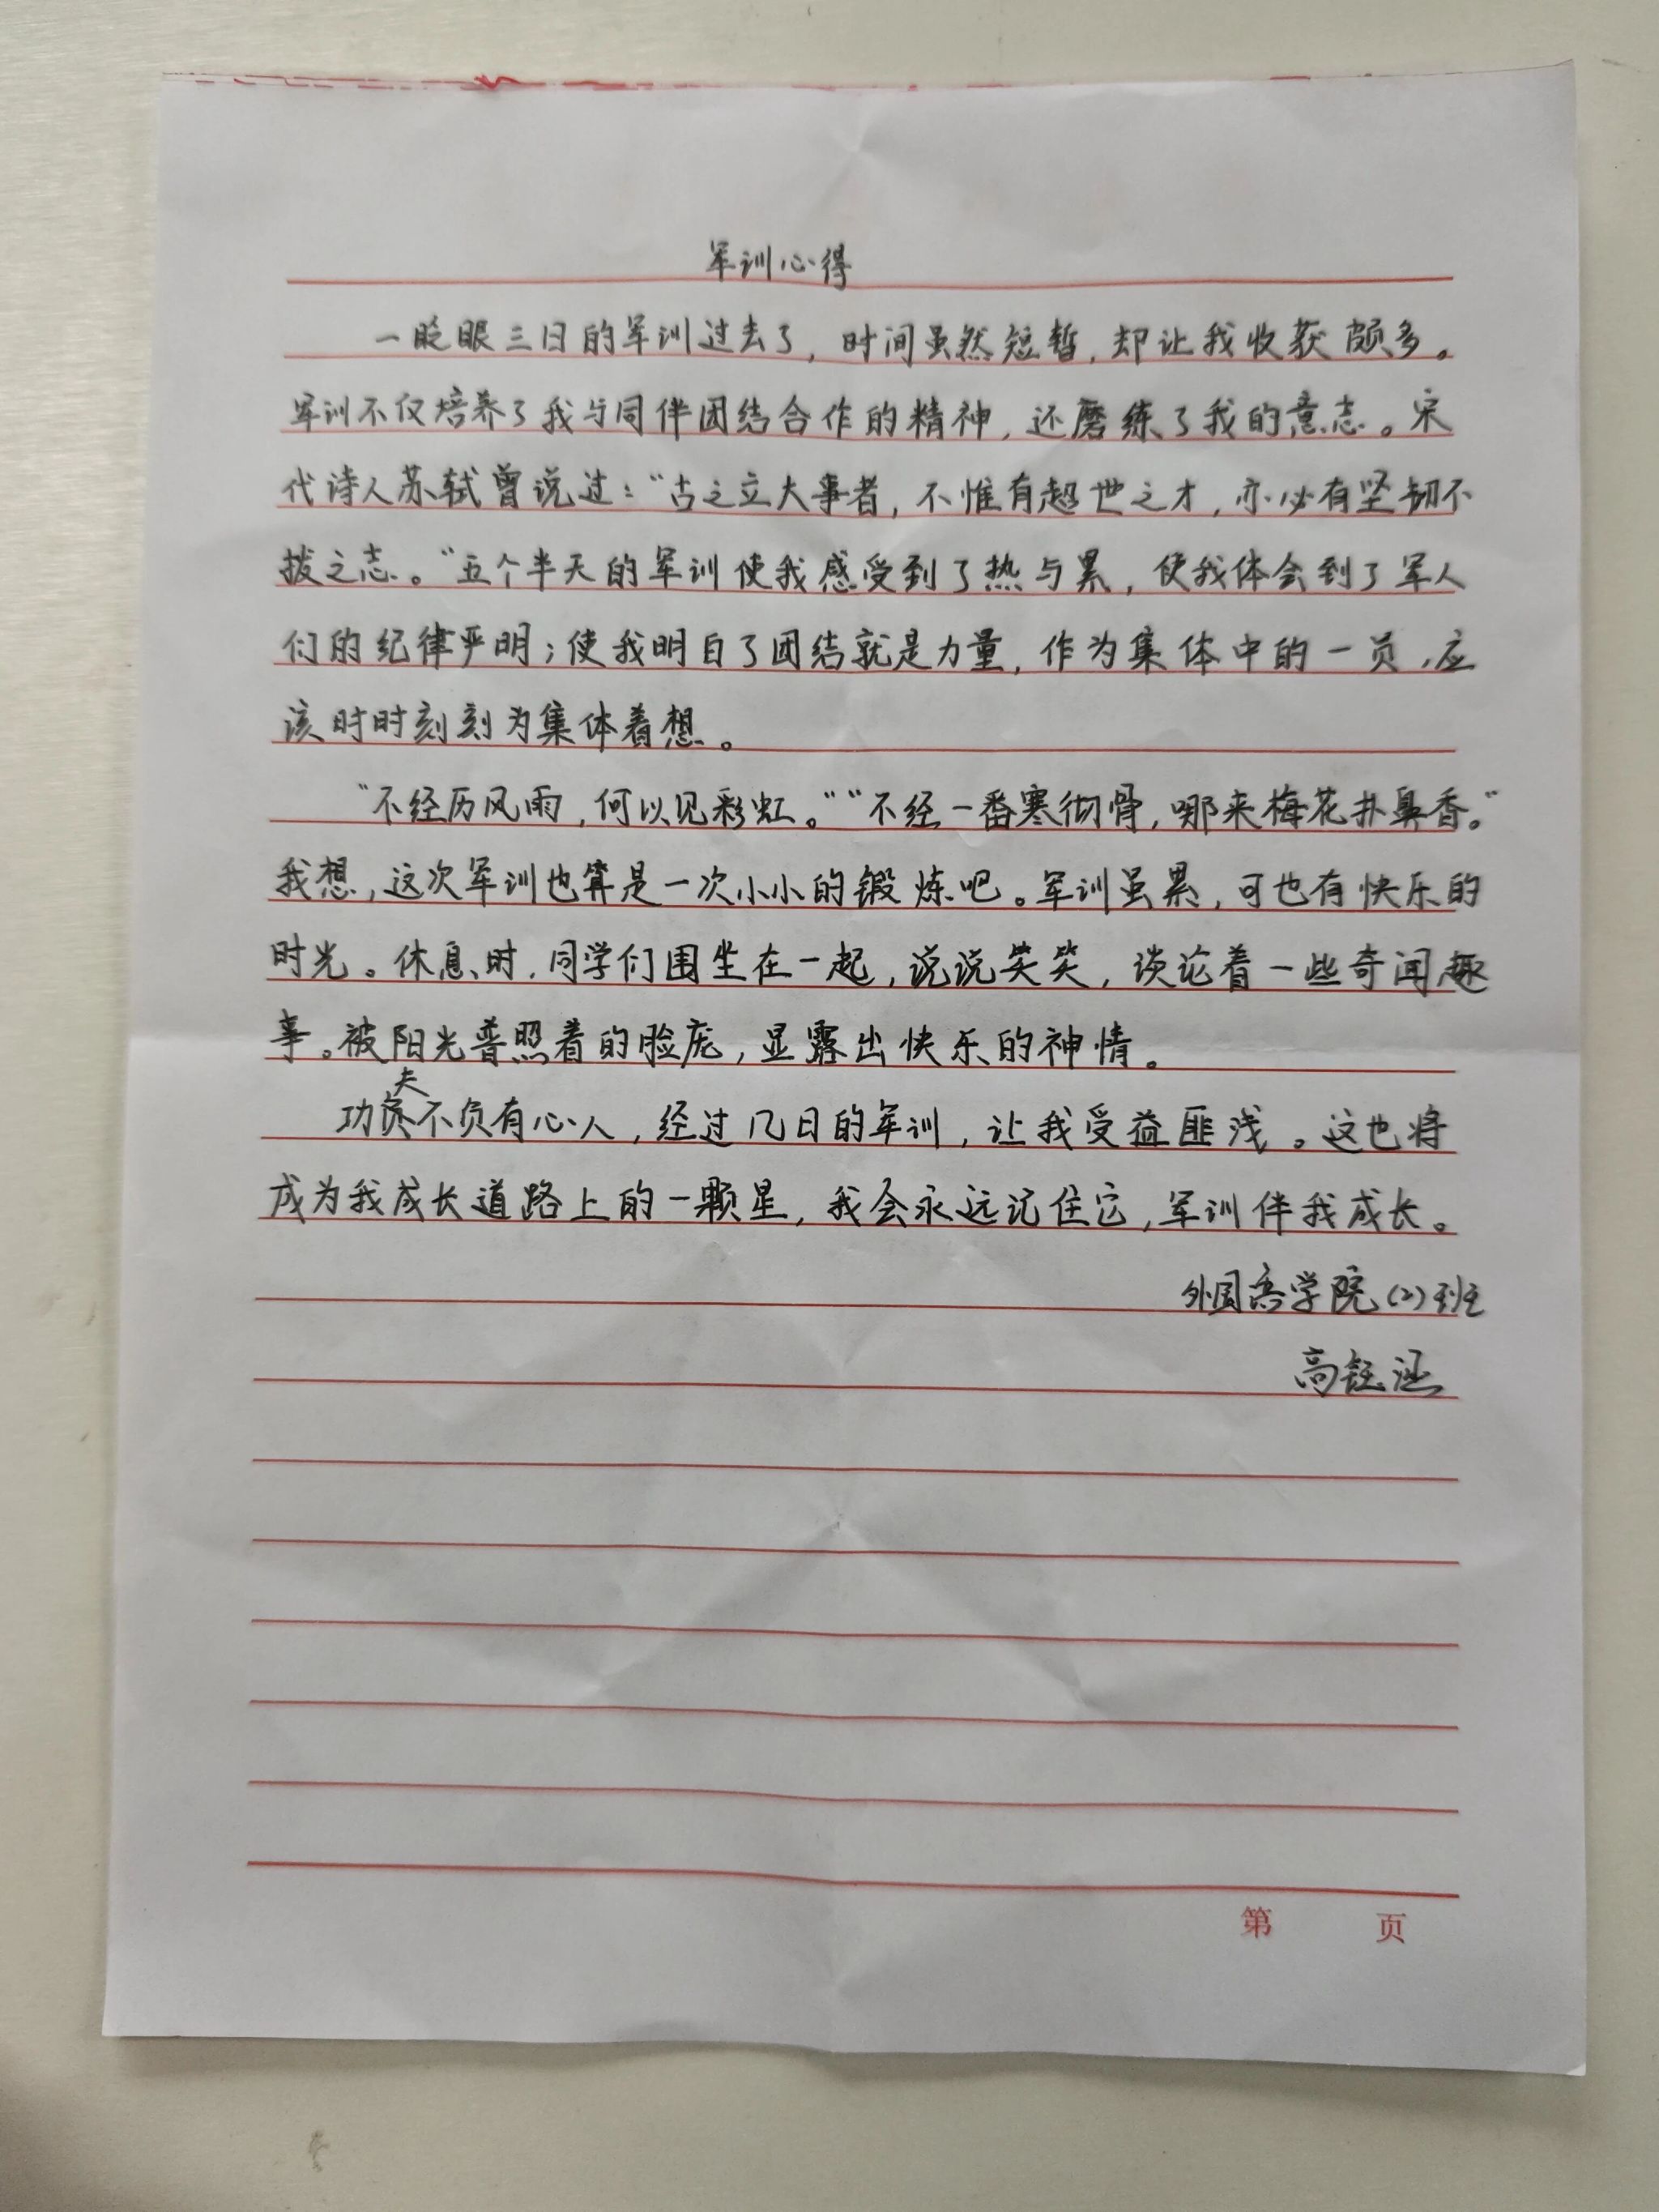 军训心得
一眨眼三日的军训过去了，时间虽然短暂，却让我收获颇多。
军训不仅培养了我与同伴团结合作的精神，还磨练了我的意志。宋
代诗人苏轼曾说过：“古之立大事者，不惟有超世之才，亦必有坚韧不
拔之志。”五个半天的军训使我感受到了热与累，使我体会到了军人
们的纪律严明；使我明白了团结就是力量，作为集体中的一员，应
该时时刻刻为集体着想。
“不经历风雨，何以见彩虹。”“不经一番寒彻骨，哪来梅花扑鼻香。”
我想，这次军训也算是一次小小的锻炼吧。军训虽累，可也有快乐的
时光。休息时，同学们围坐在一起，说说笑笑，谈论着一些奇闻趣
事。被阳光普照着的脸庞，显露出快乐的神情。
功夫不负有心人，经过几日的军训，让我受益匪浅。这也将
成为我成长道路上的一颗星，我会永远记住它，军训伴我成长。
外国语学院（2）班
高钰涵
第 页